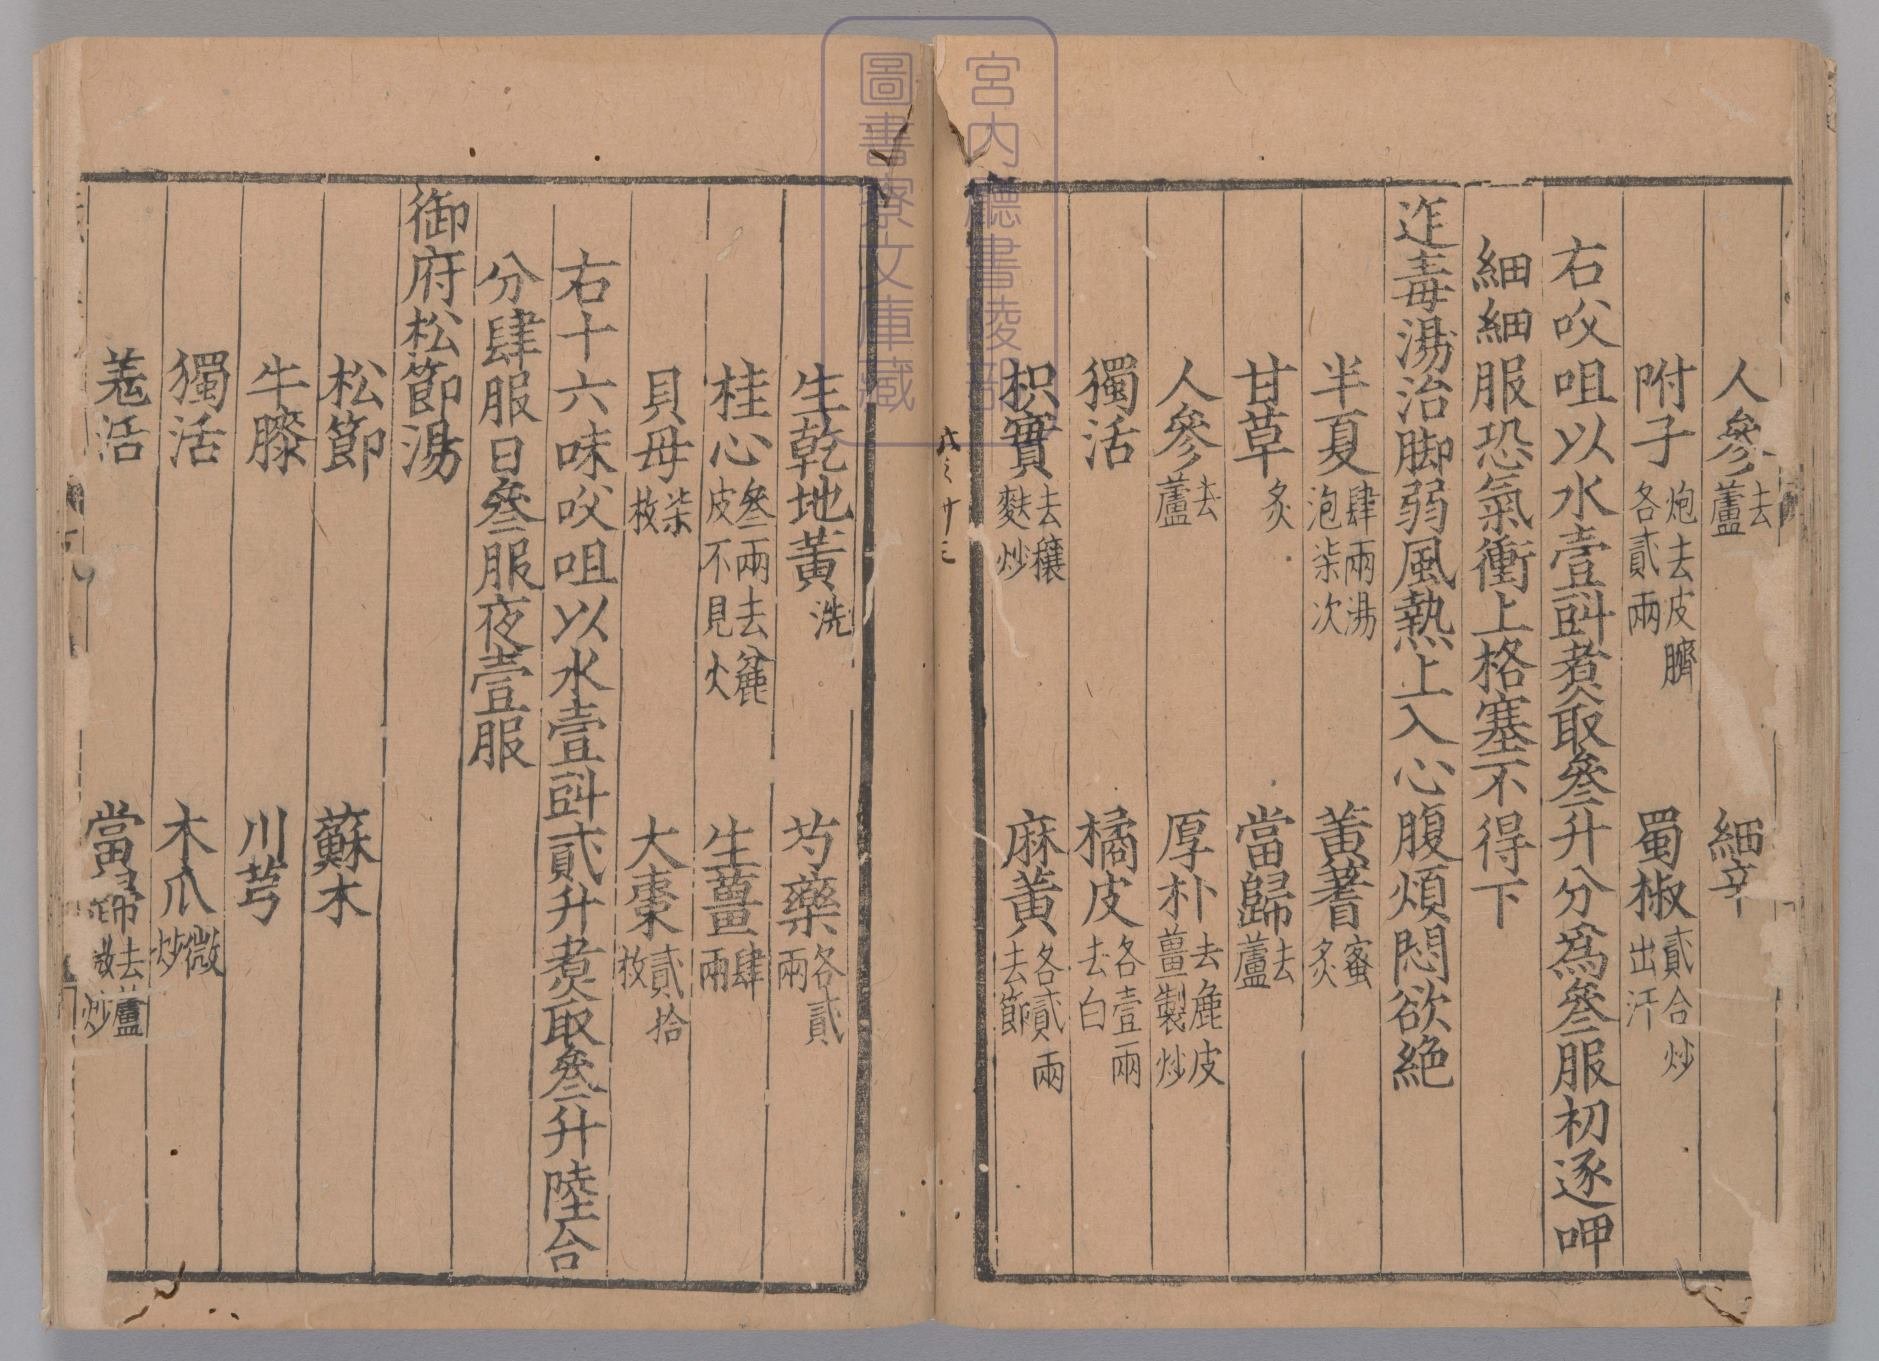 人參去蘆 細辛
附子炮去皮臍各貳兩 蜀椒貳合炒出汗
右㕮咀以水壹㪷煑取叄升分為叄服初逐呷
細細服恐氣衝上格塞不得下
迮毒湯治脚弱風熱上入心腹煩悶欲絶
半夏肆兩湯泡柒次 黃蓍蜜炙
甘草炙 當歸去蘆
人參去蘆 厚朴去麁皮薑製炒
獨活 橘皮各壹兩去白
枳實去穰麩炒 麻黃各貳兩去節
生乾地黃洗 芍藥各貳兩
桂心叄兩去麄皮不見火 生薑肆兩
貝母柒枚 大棗貳拾枚
右十六味㕮咀以水壹㪷貳升煑取叄升陸合
分肆服日叄服夜壹服
御府松節湯
松節 蘇木
牛膝 川芎
獨活 木瓜微炒
羗活 當歸去蘆微炒
宮内廳書陵部
圖書寮文庫藏